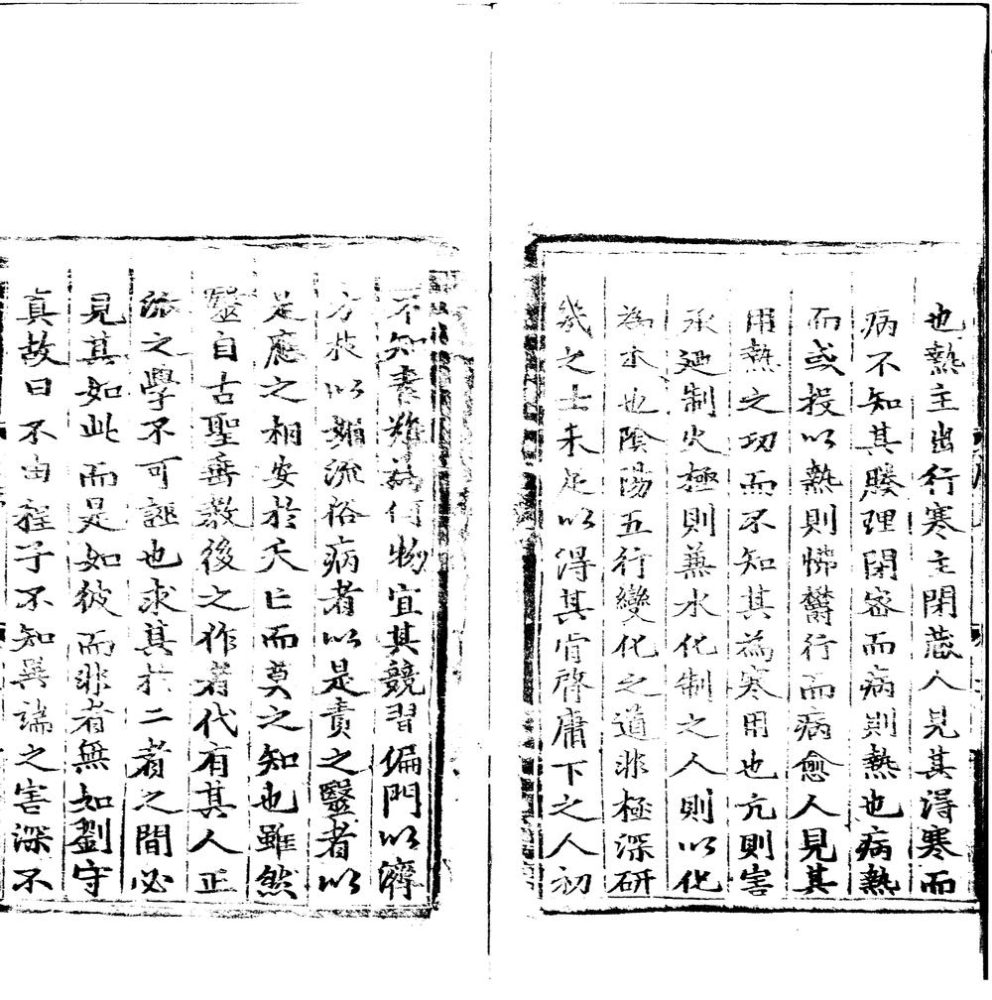 也熱主出行寒主閉蔵人見其得寒而
病不知其腠理閉密而病則熱也病熱
而或投以熱則怫欝行而病愈人見其
用熱之功而不知其為寒用也亢則害
承廼制火極則兼水化制之人則以化
為水也陰陽五行變化之道非極深研
幾之士未足以得其肯綮庸下之人初
不知素難為何物宜其競習偏門以濟
方技以雜流俗病者以是責之毉者以
是應之相安於夭亡而莫之知也雖然
毉自古聖垂教後之作者代有其人正
流之學不可誣也求其於二者之間必
見其如此而是如彼而非者無如劉守
真故曰不由程子不知異端之害深不